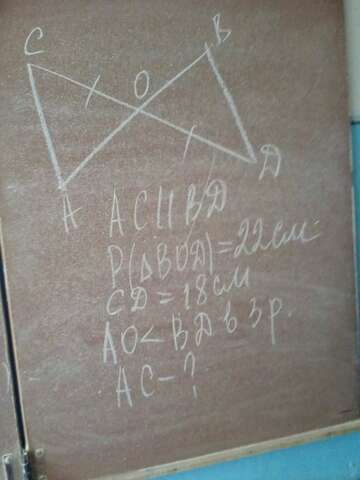 C
B
O
A
D
AC || BD
P(△BOD)=22см
CD = 18 см
AO < BD в 3 р.
AC - ?